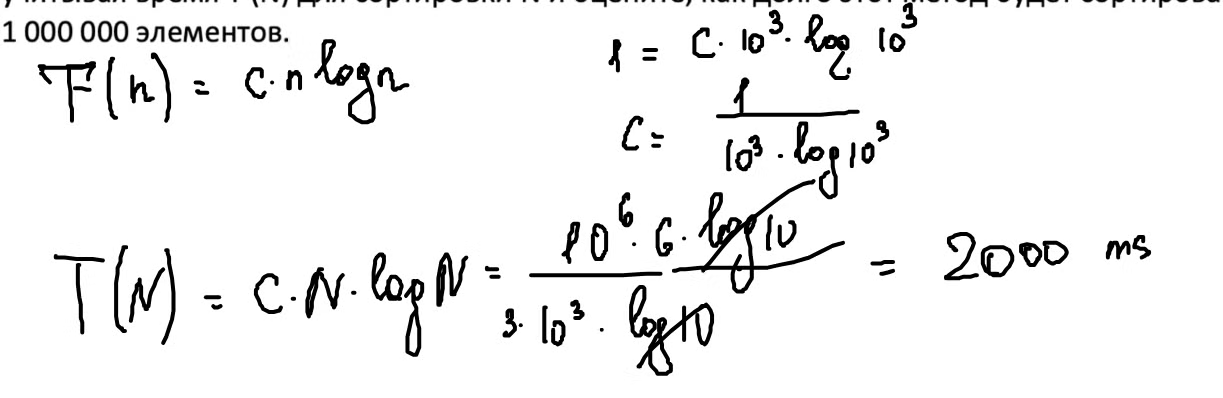 учитывая время T (N) для сортировки N и оцените, как долго этот метод будет сортирова
1 000 000 элементов.
T(n) = C·n log n
1 = C·10³·log₂ 10³
C = 1 / 10³·log 10³
T(N) = C·N·log N = 10⁶·6·log 10 / 3·10³·log 10 = 2000 ms